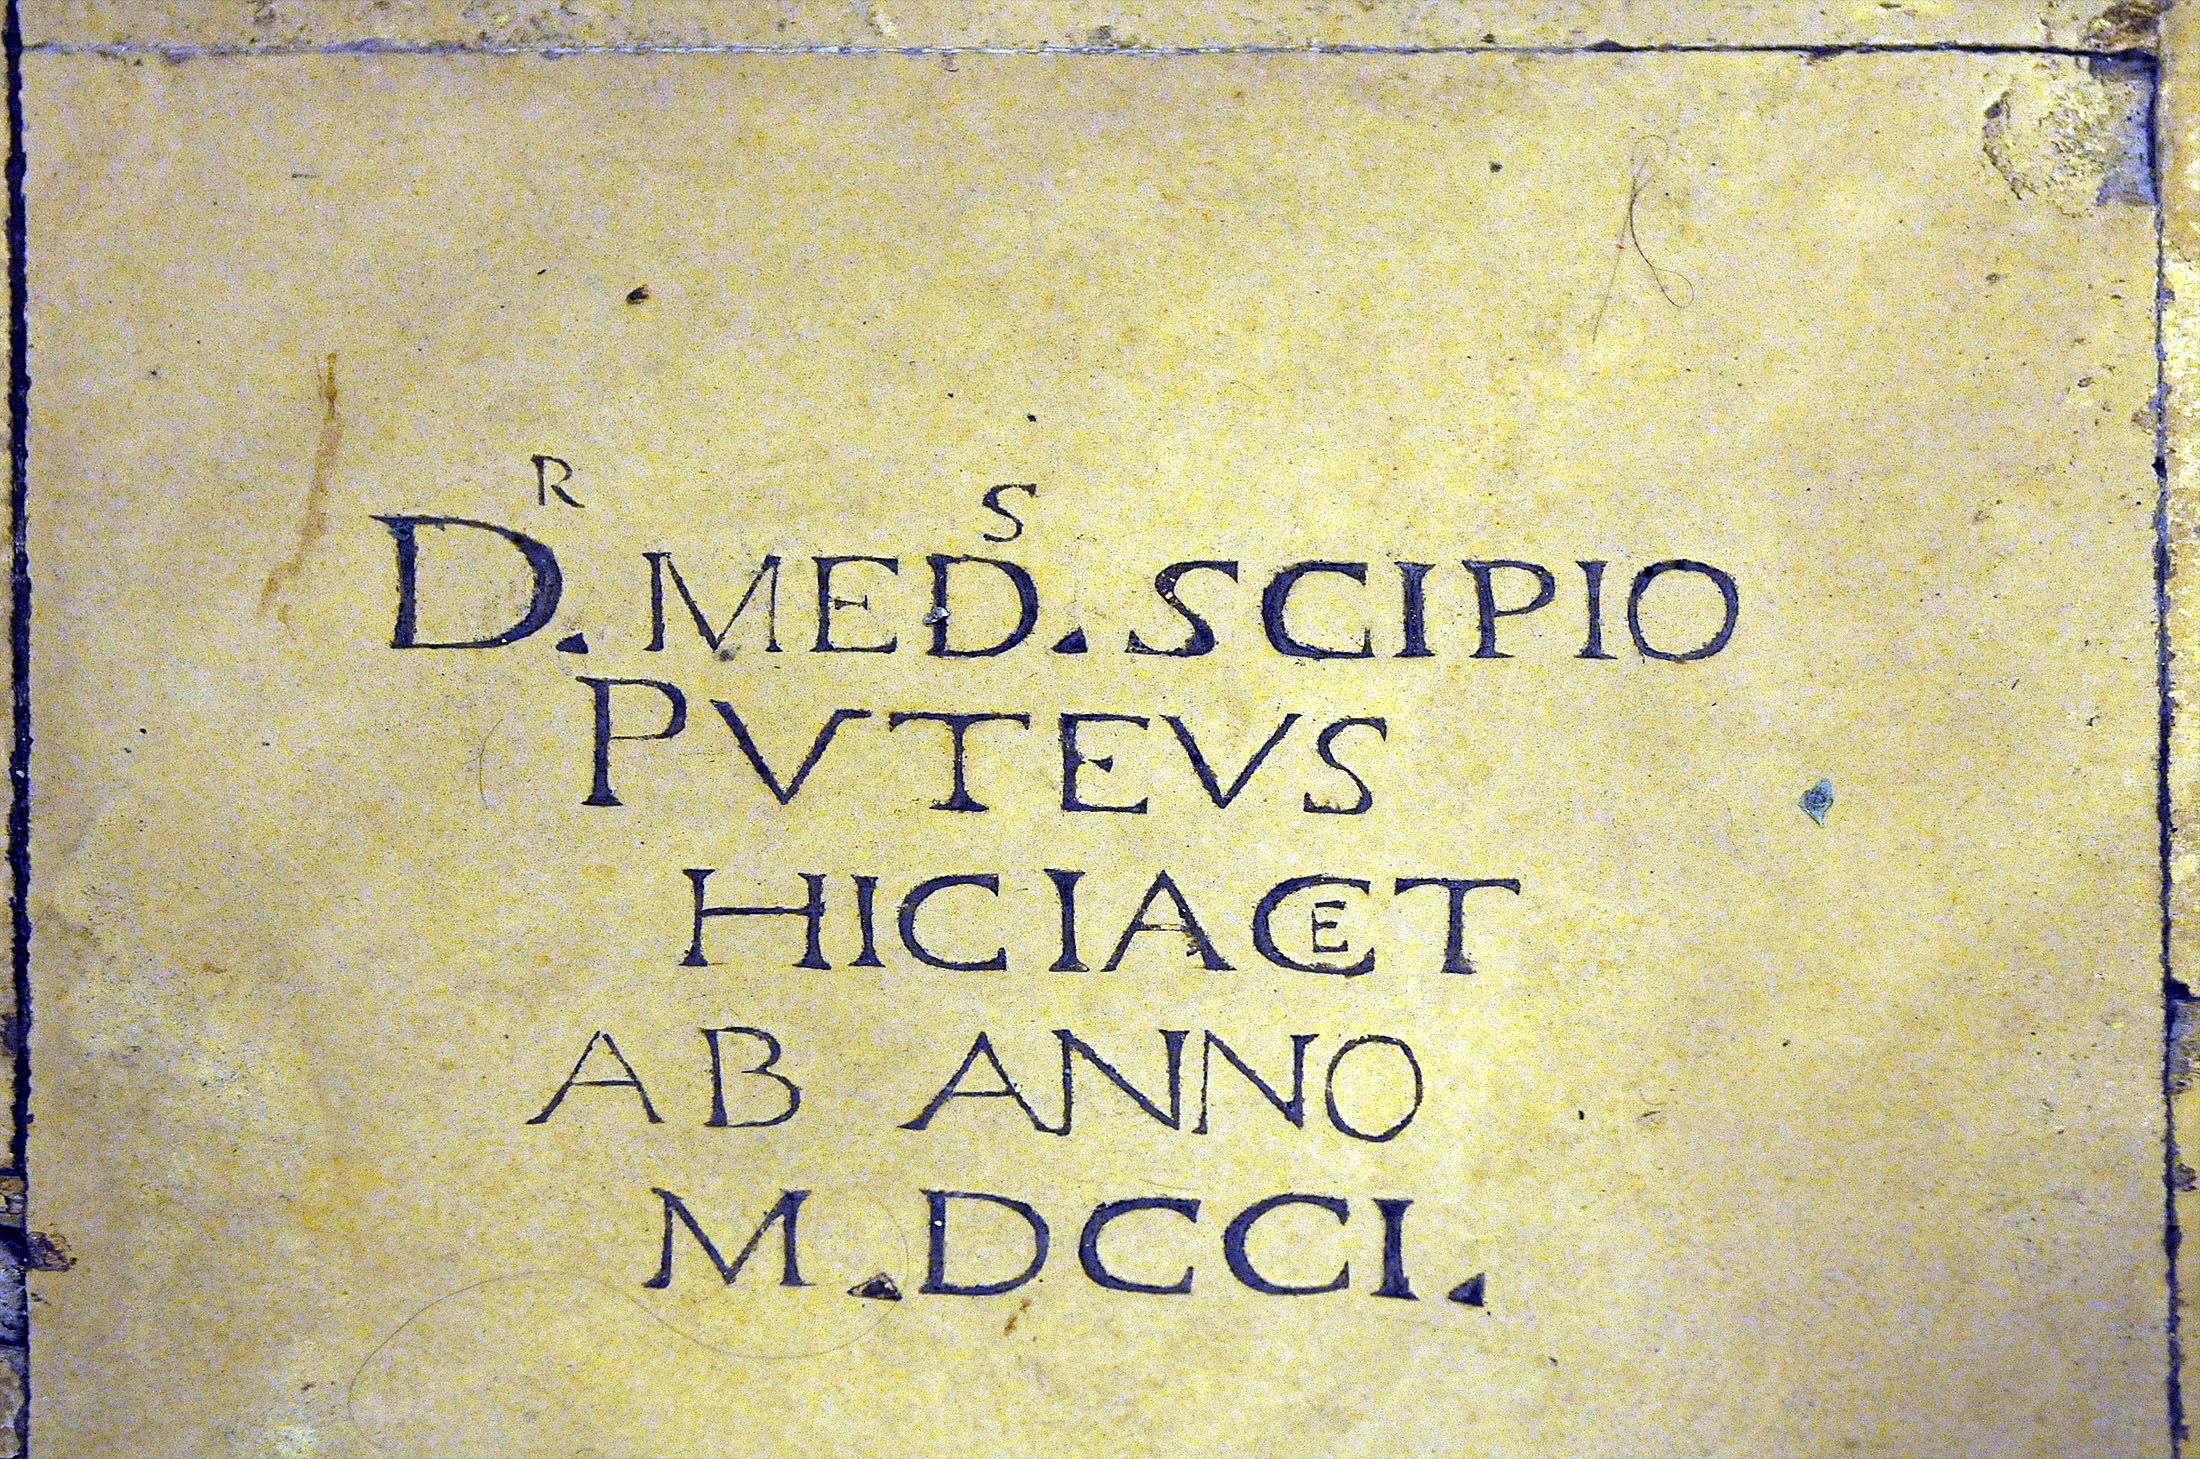 Dᴿ. MEDˢ. SCIPIO
PVTEVS
HIC IACET
AB ANNO
M.DCCI.